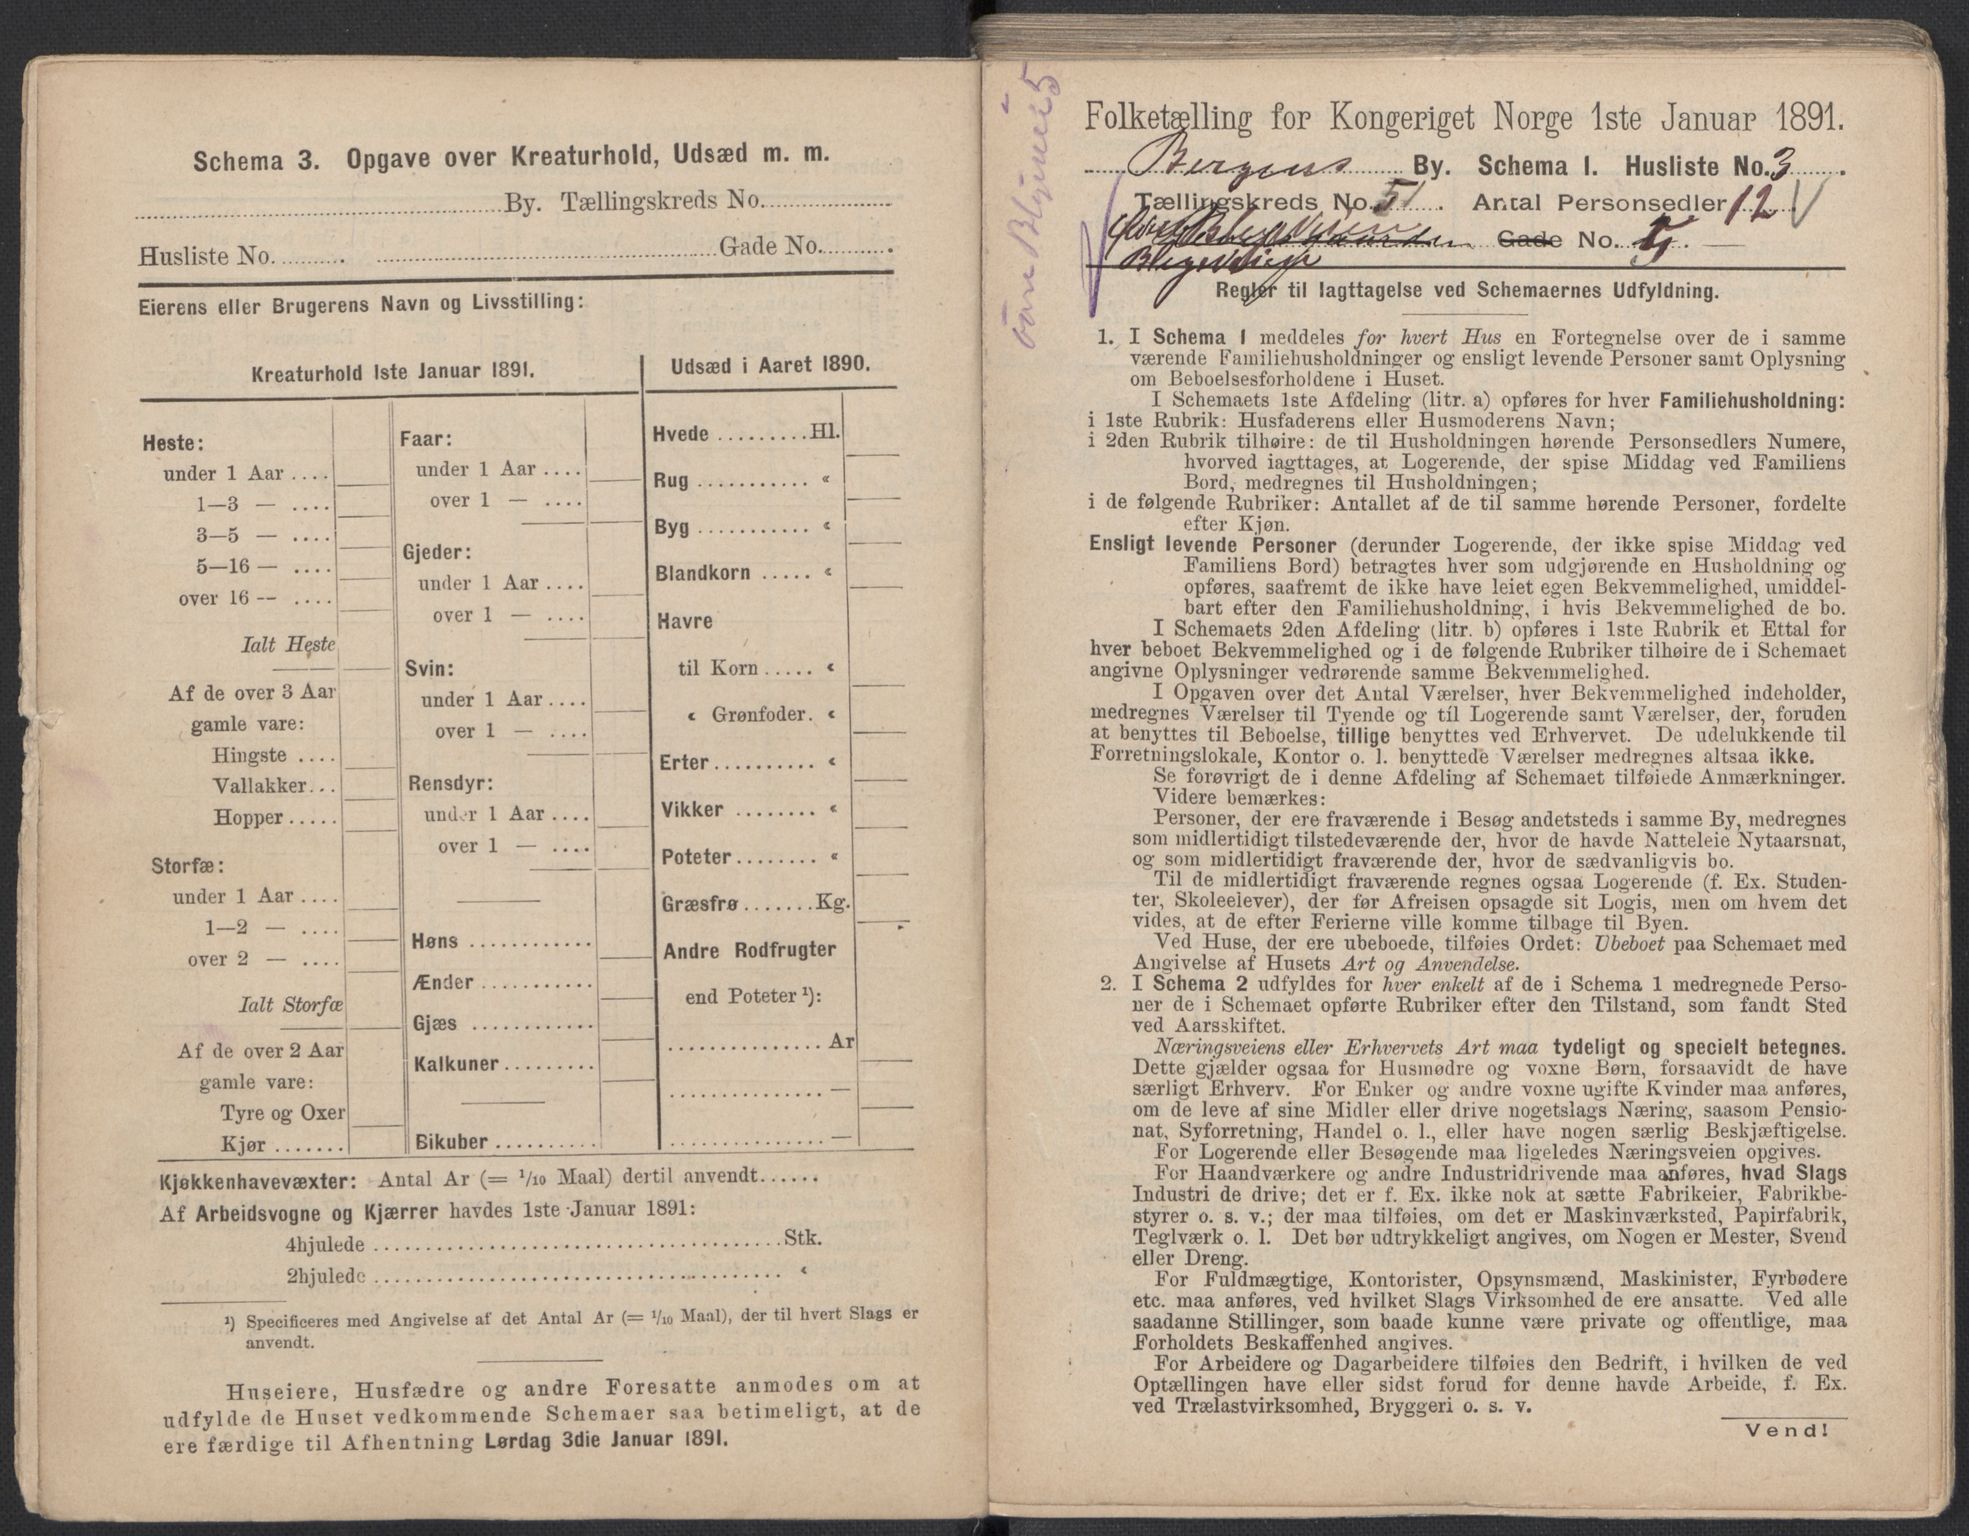 Schema 3. Opgave over Kreaturhold, Udsæd m. m.
By. Tællingskreds No.
Husliste No. Gade No.
Eierens eller Brugerens Navn og Livsstilling:
Kreaturhold 1ste Januar 1891.
Heste:
under 1 Aar ....
1—3 — ....
3—5 — ....
5—16 — ....
over 16 -- ....
Ialt Heste
Af de over 3 Aar
gamle vare:
Hingste ....
Vallakker...
Hopper.....
Storfæ:
under 1 Aar ....
1—2 — ....
over 2 — ....
Ialt Storfæ
Af de over 2 Aar
gamle vare:
Tyre og Oxer
Kjør .......
Faar:
under 1 Aar ....
over 1 — ....
Gjeder:
under 1 Aar ....
over 1 — ....
Svin:
under 1 Aar....
over 1 — ....
Rensdyr:
under 1 Aar ....
over 1 — ....
Høns ............
Ænder ...........
Gjæs ............
Kalkuner.........
Bikuber..........
Udsæd i Aaret 1890.
Hvede .........Hl.
Rug ........... «
Byg ........... «
Blandkorn ..... «
Havre
til Korn..... «
« Grønfoder. «
Erter.......... «
Vikker ........ «
Poteter........ «
Græsfrø.......Kg.
Andre Rodfrugter
end Poteter ¹):
............... Ar
............... —
............... —
Kjøkkenhavevæxter: Antal Ar (= 1/10 Maal) dertil anvendt......
Af Arbeidsvogne og Kjærrer havdes 1ste Januar 1891:
4hjulede .......................................Stk.
2hjulede ....................................... «
¹) Specificeres med Angivelse af det Antal Ar (= 1/10 Maal), der til hvert Slags er
anvendt.
Huseiere, Husfædre og andre Foresatte anmodes om at
udfylde de Huset vedkommende Schemaer saa betimeligt, at de
ere færdige til Afhentning Lørdag 3die Januar 1891.
Folketælling for Kongeriget Norge 1ste Januar 1891.
Bergens By. Schema 1. Husliste No. 3
Tællingskreds No. 5 . Antal Personsedler 12
Gade No. 5.
Regler til Iagttagelse ved Schemaernes Udfyldning.
1. I Schema 1 meddeles for hvert Hus en Fortegnelse over de i samme
værende Familiehusholdninger og ensligt levende Personer samt Oplysning
om Beboelsesforholdene i Huset.
I Schemaets 1ste Afdeling (litr. a) opføres for hver Familiehusholdning:
i 1ste Rubrik: Husfaderens eller Husmoderens Navn;
i 2den Rubrik tilhøire: de til Husholdningen hørende Personsedlers Numere,
hvorved iagttages, at Logerende, der spise Middag ved Familiens
Bord, medregnes til Husholdningen;
i de følgende Rubriker: Antallet af de til samme hørende Personer, fordelte
efter Kjøn.
Ensligt levende Personer (derunder Logerende, der ikke spise Middag ved
Familiens Bord) betragtes hver som udgjørende en Husholdning og
opføres, saafremt de ikke have leiet egen Bekvemmelighed, umiddel-
bart efter den Familiehusholdning, i hvis Bekvemmelighed de bo.
I Schemaets 2den Afdeling (litr. b) opføres i 1ste Rubrik et Ettal for
hver beboet Bekvemmelighed og i de følgende Rubriker tilhøire de i Schemaet
angivne Oplysninger vedrørende samme Bekvemmelighed.
I Opgaven over det Antal Værelser, hver Bekvemmelighed indeholder,
medregnes Værelser til Tyende og til Logerende samt Værelser, der, foruden
at benyttes til Beboelse, tillige benyttes ved Erhvervet. De udelukkende til
Forretningslokale, Kontor o. l. benyttede Værelser medregnes altsaa ikke.
Se forøvrigt de i denne Afdeling af Schemaet tilføiede Anmærkninger.
Videre bemærkes:
Personer, der ere fraværende i Besøg andetsteds i samme By, medregnes
som midlertidigt tilstedeværende der, hvor de havde Natteleie Nytaarsnat,
og som midlertidigt fraværende der, hvor de sædvanligvis bo.
Til de midlertidigt fraværende regnes ogsaa Logerende (f. Ex. Studen-
ter, Skoleelever), der før Afreisen opsagde sit Logis, men om hvem det
vides, at de efter Ferierne ville komme tilbage til Byen.
Ved Huse, der ere ubeboede, tilføies Ordet: Ubeboet paa Schemaet med
Angivelse af Husets Art og Anvendelse.
2. I Schema 2 udfyldes for hver enkelt af de i Schema 1 medregnede Perso-
ner de i Schemaet opførte Rubriker efter den Tilstand, som fandt Sted
ved Aarsskiftet.
Næringsveiens eller Erhvervets Art maa tydeligt og specielt betegnes.
Dette gjælder ogsaa for Husmødre og voxne Børn, forsaavidt de have
særligt Erhverv. For Enker og andre voxne ugifte Kvinder maa anføres,
om de leve af sine Midler eller drive nogetslags Næring, saasom Pensio-
nat, Syforretning, Handel o. l., eller have nogen særlig Beskjæftigelse.
For Logerende eller Besøgende maa ligeledes Næringsveien opgives.
For Haandværkere og andre Industridrivende maa anføres, hvad Slags
Industri de drive; det er f. Ex. ikke nok at sætte Fabrikeier, Fabrikbe-
styrer o. s. v.; der maa tilføies, om det er Maskinværksted, Papirfabrik,
Teglværk o. l. Det bør udtrykkeligt angives, om Nogen er Mester, Svend
eller Dreng.
For Fuldmægtige, Kontorister, Opsynsmænd, Maskinister, Fyrbødere
etc. maa anføres, ved hvilket Slags Virksomhed de ere ansatte. Ved alle
saadanne Stillinger, som baade kunne være private og offentlige, maa
Forholdets Beskaffenhed angives.
For Arbeidere og Dagarbeidere tilføies den Bedrift, i hvilken de ved
Optællingen have eller sidst forud for denne havde Arbeide, f. Ex.
ved Trælastvirksomhed, Bryggeri o. s. v.
Vend!